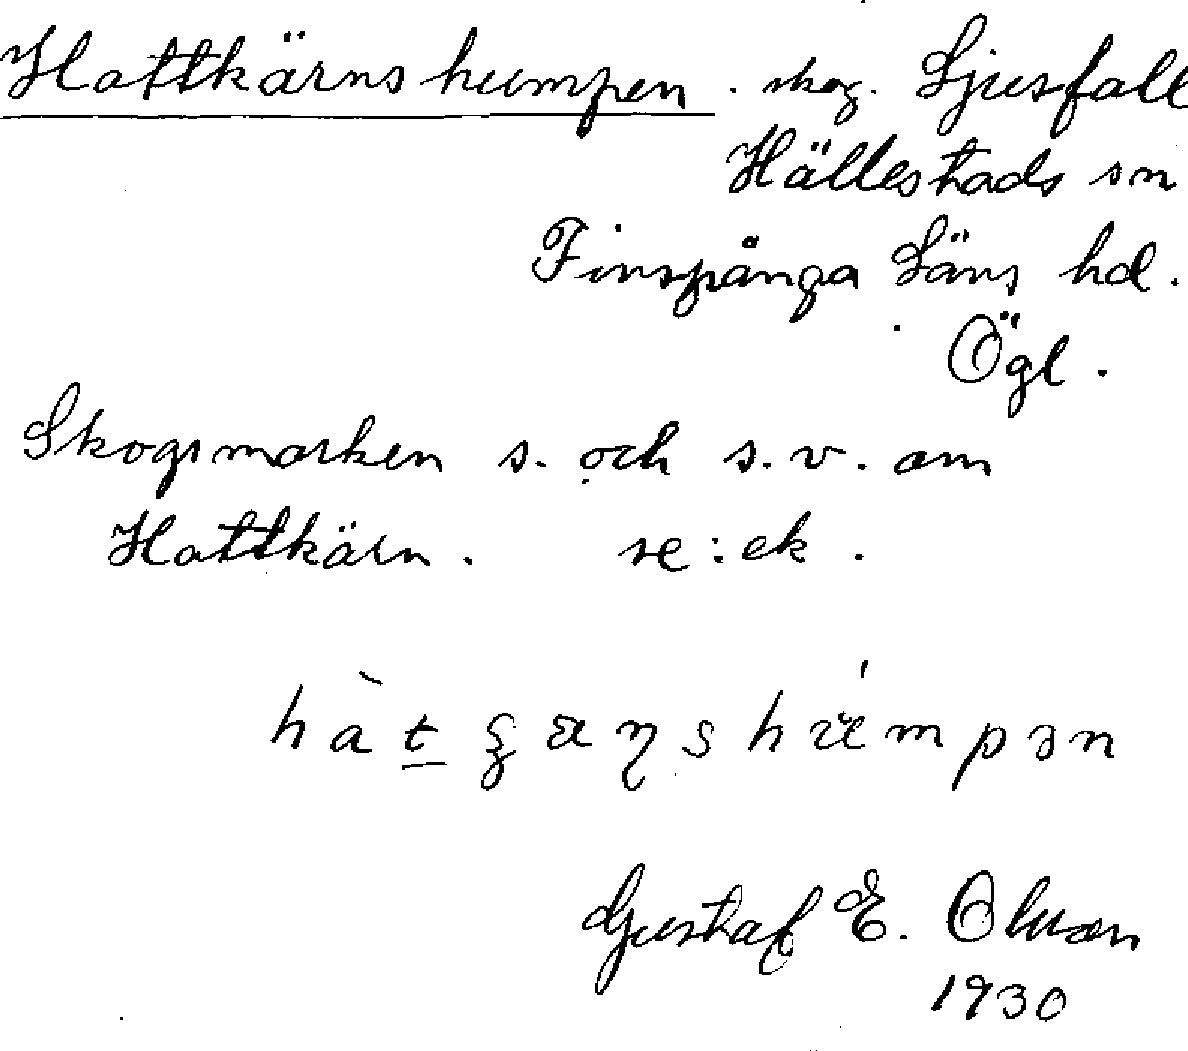 Hattkärnshumpen. skog. Ljusfall
Hällestads sn
Finspånga Läns hd.
Ögl.
Skogsmarken s. och s.v. om
Hattkärn. se: ek.
Gustaf E. Olsson
1930